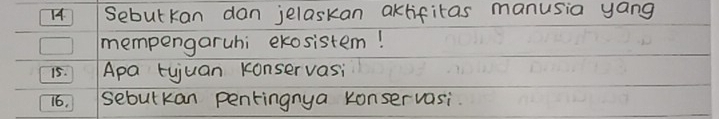 14 Sebutkan dan jelaskan aktifitas manusia yang
mempengaruhi ekosistem !
15. Apa tujuan konservasi
16. Sebutkan pentingnya konservasi.